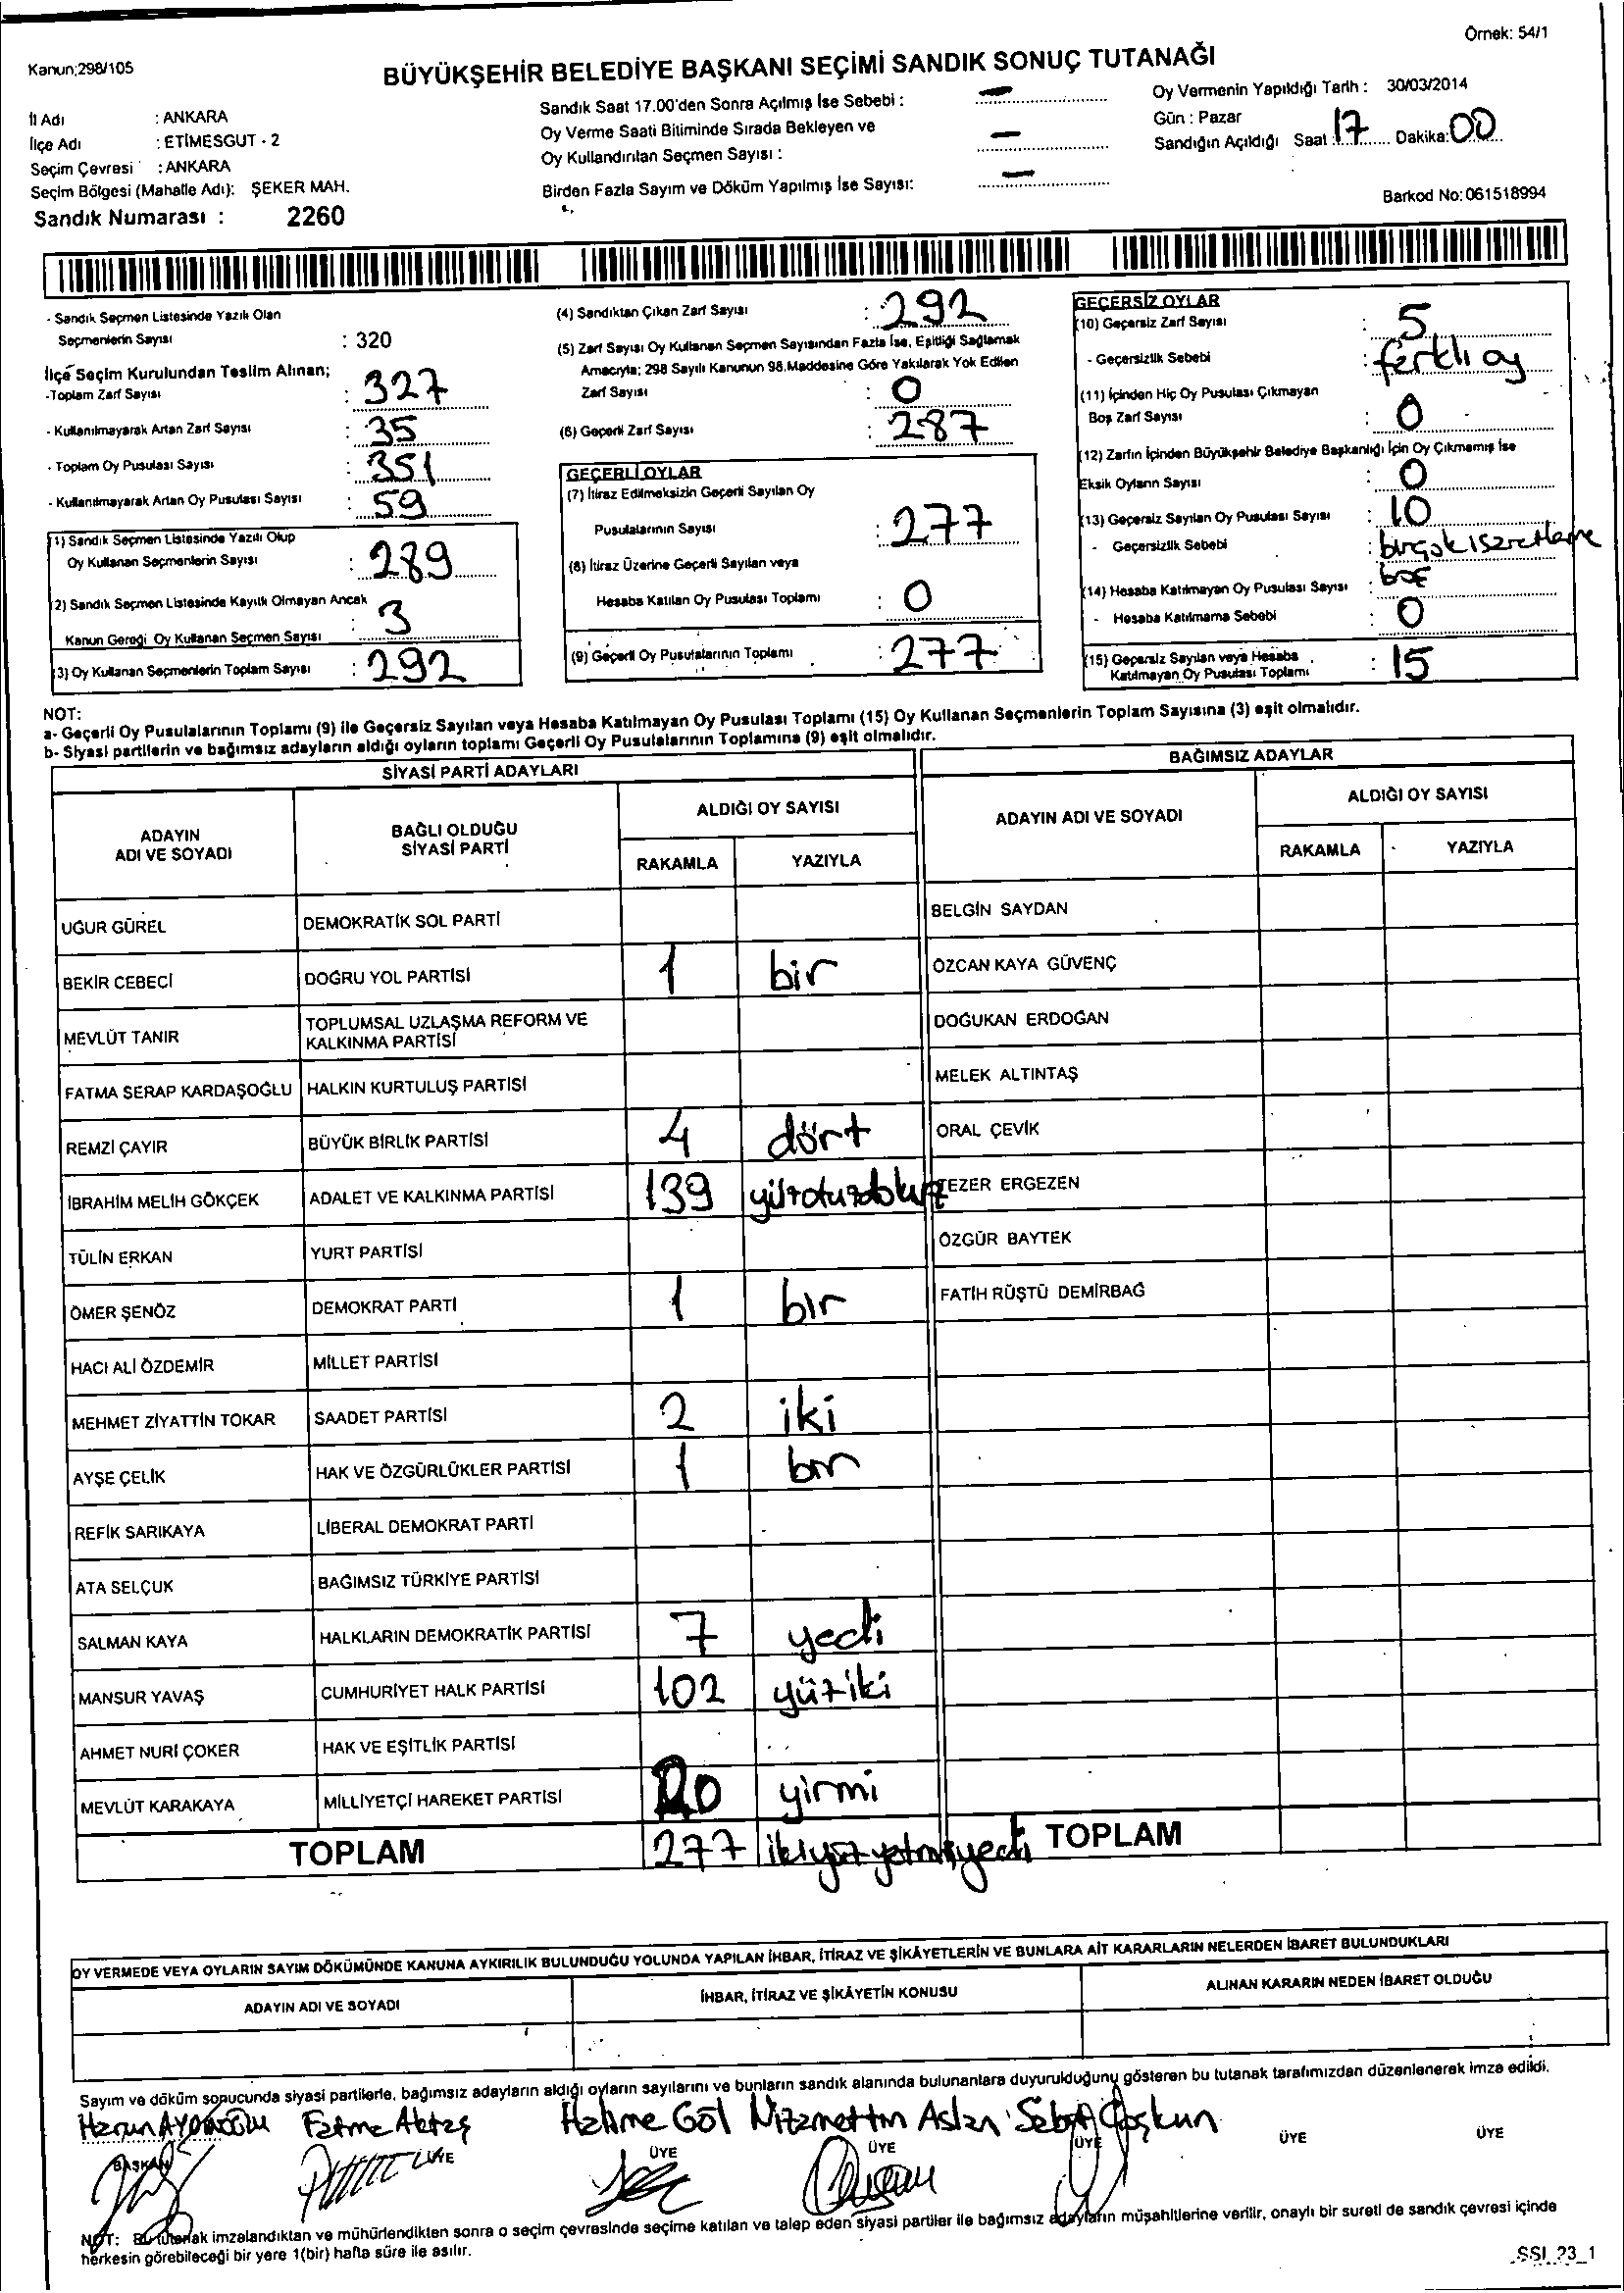 Örnek: 54/1
Kanun;298/105
BÜYÜKŞEHİR BELEDİYE BAŞKANI SEÇİMİ SANDIK SONUÇ TUTANAĞI
İl Adı : ANKARA
İlçe Adı : ETİMESGUT - 2
Seçim Çevresi : ANKARA
Seçim Bölgesi (Mahalle Adı): ŞEKER MAH.
Sandık Numarası : 2260
Sandık Saat 17.00'den Sonra Açılmış İse Sebebi : —
Oy Verme Saati Bitiminde Sırada Bekleyen ve
Oy Kullandırılan Seçmen Sayısı : —
Birden Fazla Sayım ve Döküm Yapılmış İse Sayısı: —
Oy Vermenin Yapıldığı Tarih : 30/03/2014
Gün : Pazar
Sandığın Açıldığı Saat : 17 Dakika: 00
Barkod No: 061518994
- Sandık Seçmen Listesinde Yazılı Olan
Seçmenlerin Sayısı : 320
İlçe Seçim Kurulundan Teslim Alınan;
-Toplam Zarf Sayısı : 327
- Kullanılmayarak Artan Zarf Sayısı : 35
- Toplam Oy Pusulası Sayısı : 351
- Kullanılmayarak Artan Oy Pusulası Sayısı : 59
(1) Sandık Seçmen Listesinde Yazılı Olup
Oy Kullanan Seçmenlerin Sayısı : 289
(2) Sandık Seçmen Listesinde Kayıtlı Olmayan Ancak
Kanun Gereği Oy Kullanan Seçmen Sayısı : 3
(3) Oy Kullanan Seçmenlerin Toplam Sayısı : 292
(4) Sandıktan Çıkan Zarf Sayısı : 292
(5) Zarf Sayısı Oy Kullanan Seçmen Sayısından Fazla İse, Eşitliği Sağlamak
Amacıyla; 298 Sayılı Kanunun 98.Maddesine Göre Yakılarak Yok Edilen
Zarf Sayısı : 0
(6) Geçerli Zarf Sayısı : 287
GEÇERLİ OYLAR
(7) İtiraz Edilmeksizin Geçerli Sayılan Oy
Pusulalarının Sayısı : 277
(8) İtiraz Üzerine Geçerli Sayılan veya
Hesaba Katılan Oy Pusulası Toplamı : 0
(9) Geçerli Oy Pusulalarının Toplamı : 277
GEÇERSİZ OYLAR
(10) Geçersiz Zarf Sayısı : 5
- Geçersizlik Sebebi : ferklı oy
(11) İçinden Hiç Oy Pusulası Çıkmayan
Boş Zarf Sayısı : 0
(12) Zarfın İçinden Büyükşehir Belediye Başkanlığı İçin Oy Çıkmamış İse
Eksik Oyların Sayısı : 0
(13) Geçersiz Sayılan Oy Pusulası Sayısı : 10
- Geçersizlik Sebebi : birçok iseretleme
boş
(14) Hesaba Katılmayan Oy Pusulası Sayısı :
- Hesaba Katılmama Sebebi : 0
(15) Geçersiz Sayılan veya Hesaba
Katılmayan Oy Pusulası Toplamı : 15
NOT:
a- Geçerli Oy Pusulalarının Toplamı (9) ile Geçersiz Sayılan veya Hesaba Katılmayan Oy Pusulası Toplamı (15) Oy Kullanan Seçmenlerin Toplam Sayısına (3) eşit olmalıdır.
b- Siyasi partilerin ve bağımsız adayların aldığı oyların toplamı Geçerli Oy Pusulalarının Toplamına (9) eşit olmalıdır.
SİYASİ PARTİ ADAYLARI
BAĞIMSIZ ADAYLAR
ADAYIN ADI VE SOYADI
BAĞLI OLDUĞU SİYASİ PARTİ
ALDIĞI OY SAYISI
RAKAMLA YAZIYLA
ADAYIN ADI VE SOYADI
ALDIĞI OY SAYISI
RAKAMLA YAZIYLA
UĞUR GÜREL DEMOKRATİK SOL PARTİ BELGİN SAYDAN
BEKİR CEBECİ DOĞRU YOL PARTİSİ 1 bir ÖZCAN KAYA GÜVENÇ
MEVLÜT TANIR TOPLUMSAL UZLAŞMA REFORM VE KALKINMA PARTİSİ DOĞUKAN ERDOĞAN
FATMA SERAP KARDAŞOĞLU HALKIN KURTULUŞ PARTİSİ MELEK ALTINTAŞ
REMZİ ÇAYIR BÜYÜK BİRLİK PARTİSİ 4 dört ORAL ÇEVİK
İBRAHİM MELİH GÖKÇEK ADALET VE KALKINMA PARTİSİ 139 yüzotuzdokuz TEZER ERGEZEN
TÜLİN ERKAN YURT PARTİSİ ÖZGÜR BAYTEK
ÖMER ŞENÖZ DEMOKRAT PARTİ 1 bir FATİH RÜŞTÜ DEMİRBAĞ
HACI ALİ ÖZDEMİR MİLLET PARTİSİ
MEHMET ZİYATTİN TOKAR SAADET PARTİSİ 2 iki
AYŞE ÇELİK HAK VE ÖZGÜRLÜKLER PARTİSİ 1 bir
REFİK SARIKAYA LİBERAL DEMOKRAT PARTİ
ATA SELÇUK BAĞIMSIZ TÜRKİYE PARTİSİ
SALMAN KAYA HALKLARIN DEMOKRATİK PARTİSİ 7 yedi
MANSUR YAVAŞ CUMHURİYET HALK PARTİSİ 102 yüziki
AHMET NURİ ÇOKER HAK VE EŞİTLİK PARTİSİ
MEVLÜT KARAKAYA MİLLİYETÇİ HAREKET PARTİSİ 20 yirmi
TOPLAM 277 ikiyüzyetmişyedi TOPLAM
OY VERMEDE VEYA OYLARIN SAYIM DÖKÜMÜNDE KANUNA AYKIRILIK BULUNDUĞU YOLUNDA YAPILAN İHBAR, İTİRAZ VE ŞİKÂYETLERİN VE BUNLARA AİT KARARLARIN NELERDEN İBARET BULUNDUKLARI
ADAYIN ADI VE SOYADI İHBAR, İTİRAZ VE ŞİKÂYETİN KONUSU ALINAN KARARIN NEDEN İBARET OLDUĞU
Sayım ve döküm sonucunda siyasi partilerle, bağımsız adayların aldığı oyların sayılarını ve bunların sandık alanında bulunanlara duyurulduğunu gösteren bu tutanak tarafımızdan düzenlenerek imza edildi.
Harun Fatma Aktaş Halime Göl Nizamettin Aslan Coşkun
BAŞKAN ÜYE ÜYE ÜYE ÜYE ÜYE ÜYE
NOT: Bu tutanak imzalandıktan ve mühürlendikten sonra o seçim çevresinde seçime katılan ve talep eden siyasi partiler ile bağımsız adayların müşahitlerine verilir, onaylı bir sureti de sandık çevresi içinde
herkesin görebileceği bir yere 1(bir) hafta süre ile asılır.
SSI_23_1